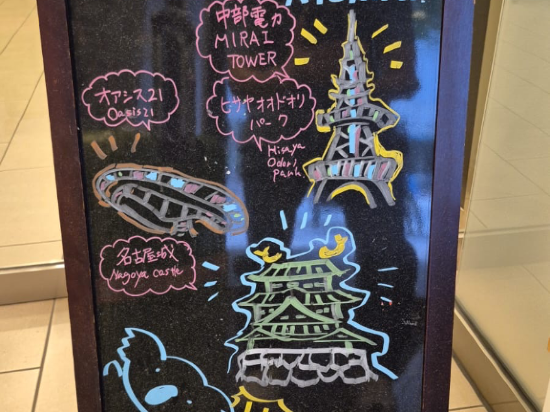 中部電力
MIRAI
TOWER
オアシス21
Oasis21
ヒサヤオオドオリ
パーク
Hisaya
Odori
park
名古屋城
Nagoya castle